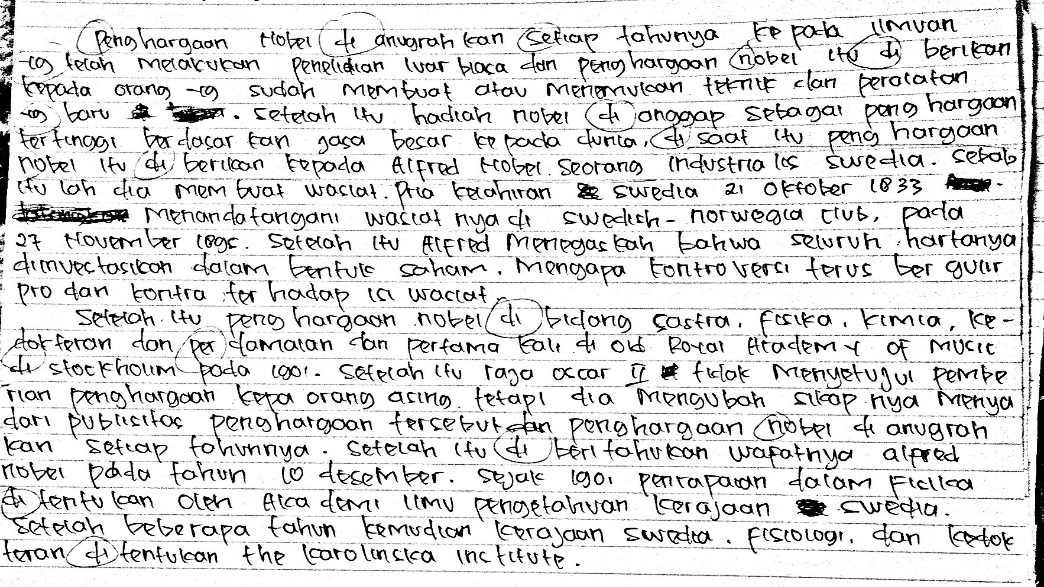 Penghargaan Nobel di anugrah kan setiap tahunya kepada ilmuan
yg telah melakukan penelidian luar biaca dan penghargaan nobel itu di berikan
kepada orang yg sudah membuat atau menemukan teknik dan peralatan
yg baru. Setelah itu hadiah nobel di anggap sebagai peng hargaan
tertinggi berdasar kan jasa besar ke pada dunia, di saat itu peng hargaan
nobel itu di berikan kepada Alfred Nobel seorang industrialis swedia. sebab
itu lah dia mem buat wasiat. Pria kelahiran swedia 21 oktober 1833.
Menandatangani wasiat nya di swedish - norwegia club, pada
27 November 1895. Setelah itu Alfred Menegaskan bahwa seluruh hartanya
diinvestasikan dalam bentuk saham. Mengapa kontroversi terus ber gulir
pro dan kontra ter hadap isi wasiat.
Setelah itu peng hargaan nobel di bidang sastra, fisika, kimia, ke-
dokteran dan per damaian dan pertama kali di old Royal Academy of Music
di stockholim pada 1901. Setelah itu raja oscar II tidak menyetujui pembe
rian penghargaan kepa orang asing tetapi dia mengubah sikap nya menya
dari publisitas penghargaan tersebut dan penghargaan nobel di anugrah
kan setiap tahunnya. Setelah itu di beri tahukan wafatnya alfred
nobel pada tahun 10 desember. Sejak 1901 penrapaian dalam Fisika
di tentukan oleh Akademi ilmu pengetahuan kerajaan swedia.
Setelah beberapa tahun kemudian kerajaan swedia, fisiologi, dan kedok
teran di tentukan the karolinska institute.